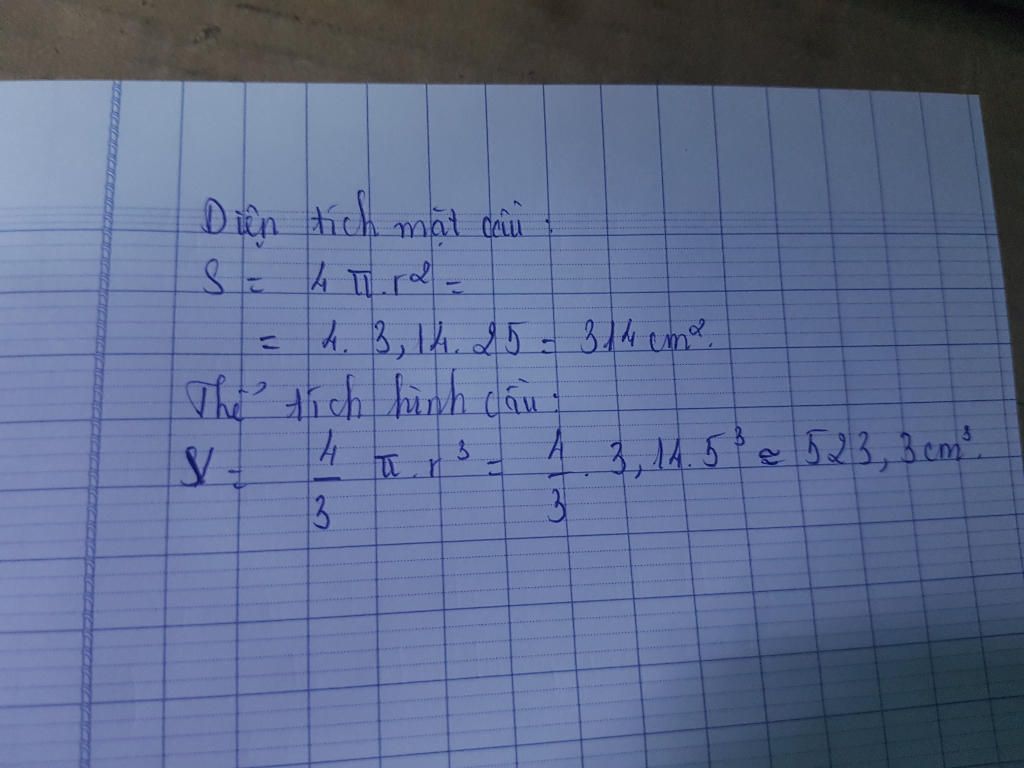 Diện tích mặt cầu:
S = 4 π.r² =
= 4. 3,14. 25 = 314 cm².
Thể tích hình cầu:
V = 4/3 π.r³ = 4/3 . 3,14. 5³ ≈ 523,3 cm³.